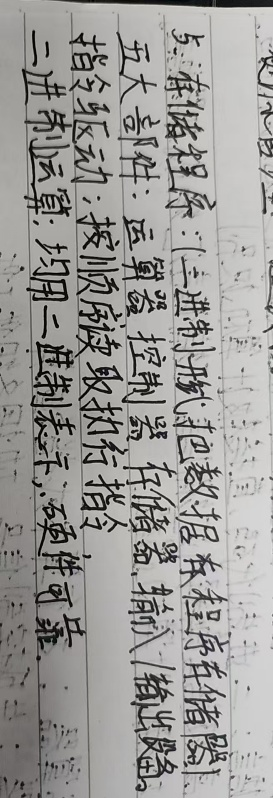 5. 存储程序：(二进制形式把数据和程序存储器)
五大部件：运算器 控制器 存储器 输入/输出设备。
指令驱动：按顺序读取执行指令
二进制运算：均用二进制表示，硬件可靠.